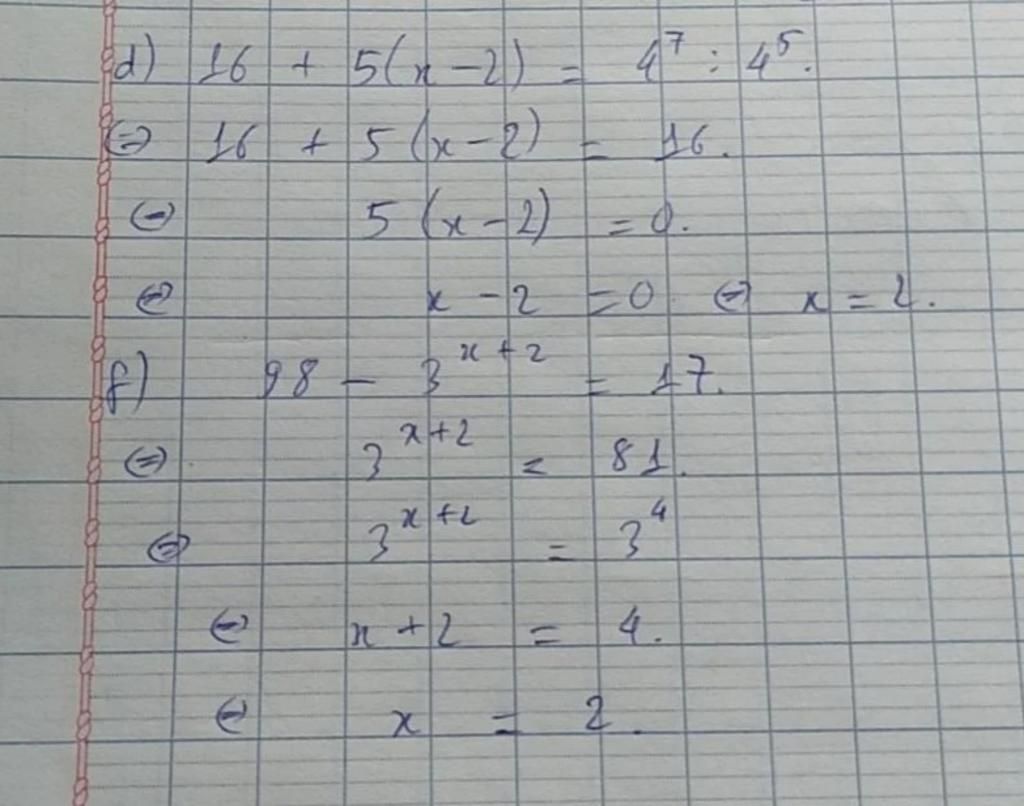 d) 16 + 5(x – 2) = 4⁷ : 4⁵.
⇔ 16 + 5(x – 2) = 16.
⇔ 5(x – 2) = 0.
⇔ x – 2 = 0 ⇔ x = 2.
f) 98 – 3ˣ⁺² = 17.
⇔ 3ˣ⁺² = 81.
⇔ 3ˣ⁺² = 3⁴
⇔ x + 2 = 4.
⇔ x = 2.